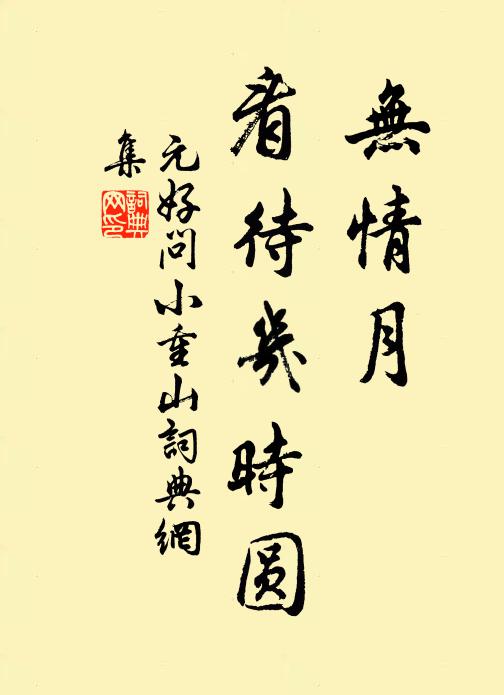 無情月
看待幾時圓
元好問小重山詞典網
集
詞典
网印